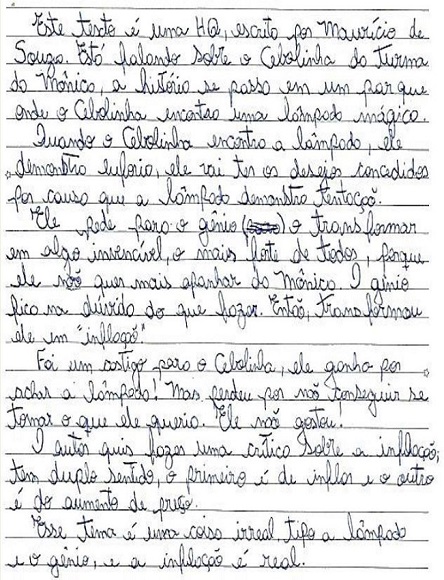 Este texto é uma HQ, escrito por Maurício de
Souza. Está falando sobre o Cebolinha da Turma
da Mônica, a história se passa em um parque
onde o Cebolinha encontra uma lâmpada mágica.
Quando o Cebolinha encontra a lâmpada, ele
demonstra euforia, ele vai ter os desejos concedidos
por causa que a lâmpada demonstra tentação.
Ele pede para o gênio o transformar
em algo invencível, o mais forte de todos, porque
ele não quer mais apanhar da Mônica. O gênio
fica na dúvida do que fazer. Então, transformou
ele em "inflação".
Foi um castigo para o Cebolinha, ele ganha por
achar a lâmpada! Mas perdeu por não conseguir se
tornar o que ele queria. Ele não gostou!
O autor quis fazer uma crítica sobre a inflação,
tem duplo sentido, o primeiro é de inflar e o outro
é do aumento de preço.
Esse tema é uma coisa irreal, tipo a lâmpada
e o gênio, e a inflação é real.